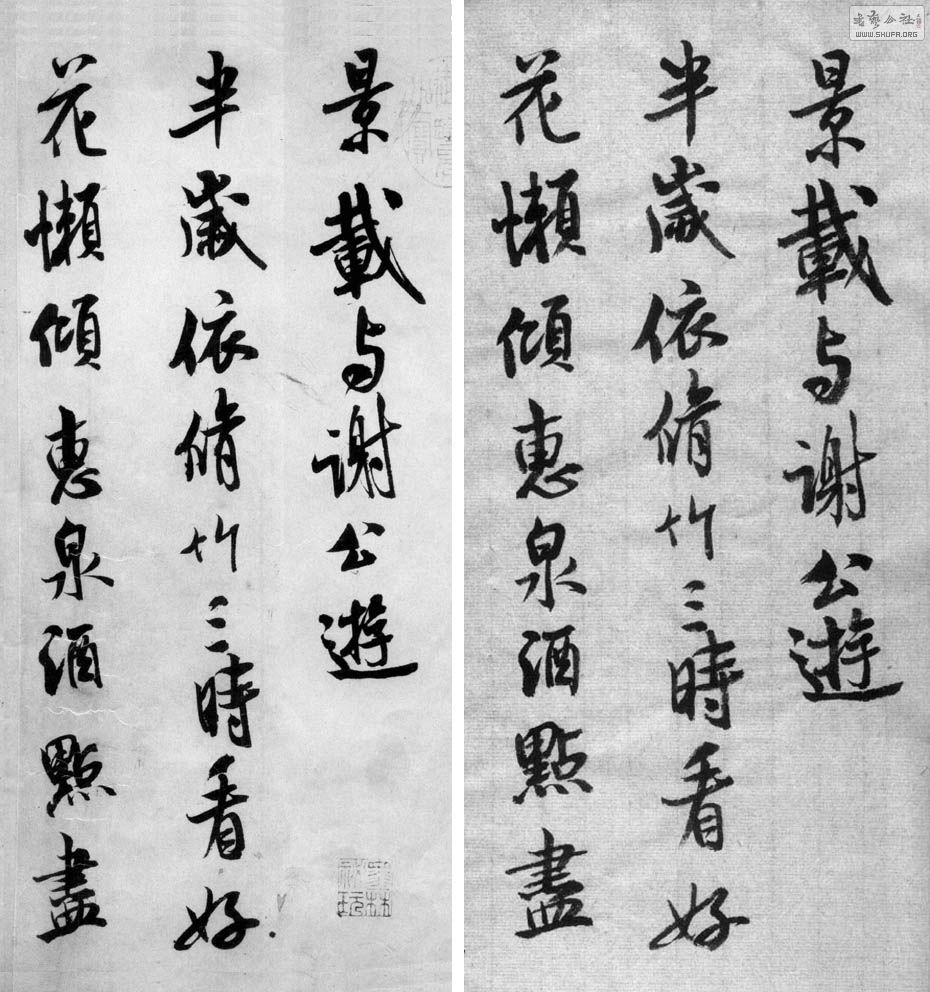 景載与謝公遊
半歲依脩竹三時看好
花懶傾惠泉酒點盡
景載与謝公遊
半歲依脩竹三時看好
花懶傾惠泉酒點盡
書藝公社
WWW.SHUFA.ORG